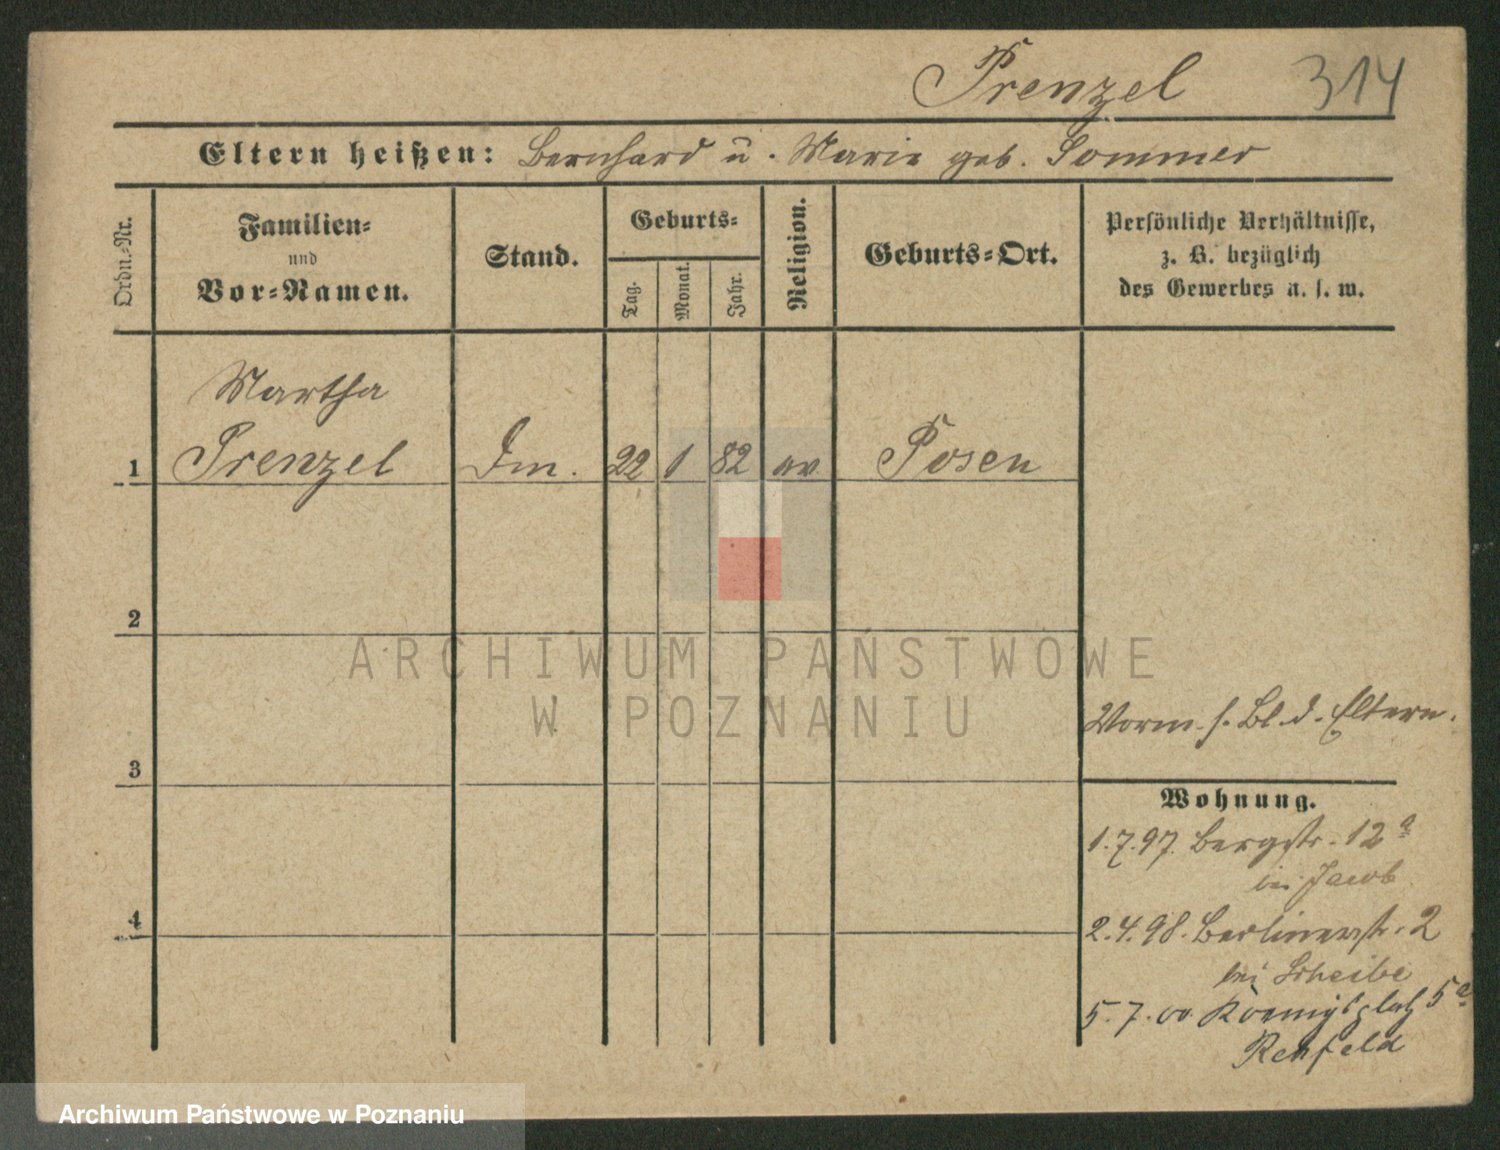 Prenzel 314
Eltern heißen: Bernhard u. Marie geb. Sommer
Ordn.-Nr.
Familien-
und
Vor-Namen.
Stand.
Geburts-
Tag.
Monat.
Jahr.
Religion.
Geburts-Ort.
Persönliche Verhältnisse,
z. B. bezüglich
des Gewerbes u. s. w.
Martha
1 Prenzel 22 1 82 ev Posen
2
3
4
Vorm. s. Bl. d. Eltern.
Wohnung.
1.7.97. Bergstr. 12a
bei Jacob
2.4.98. Berlinerstr. 2
bei Scheibe
5.7.00 Koenigsplatz 5a
Rehfeld
ARCHIWUM PAŃSTWOWE
W POZNANIU
Archiwum Państwowe w Poznaniu